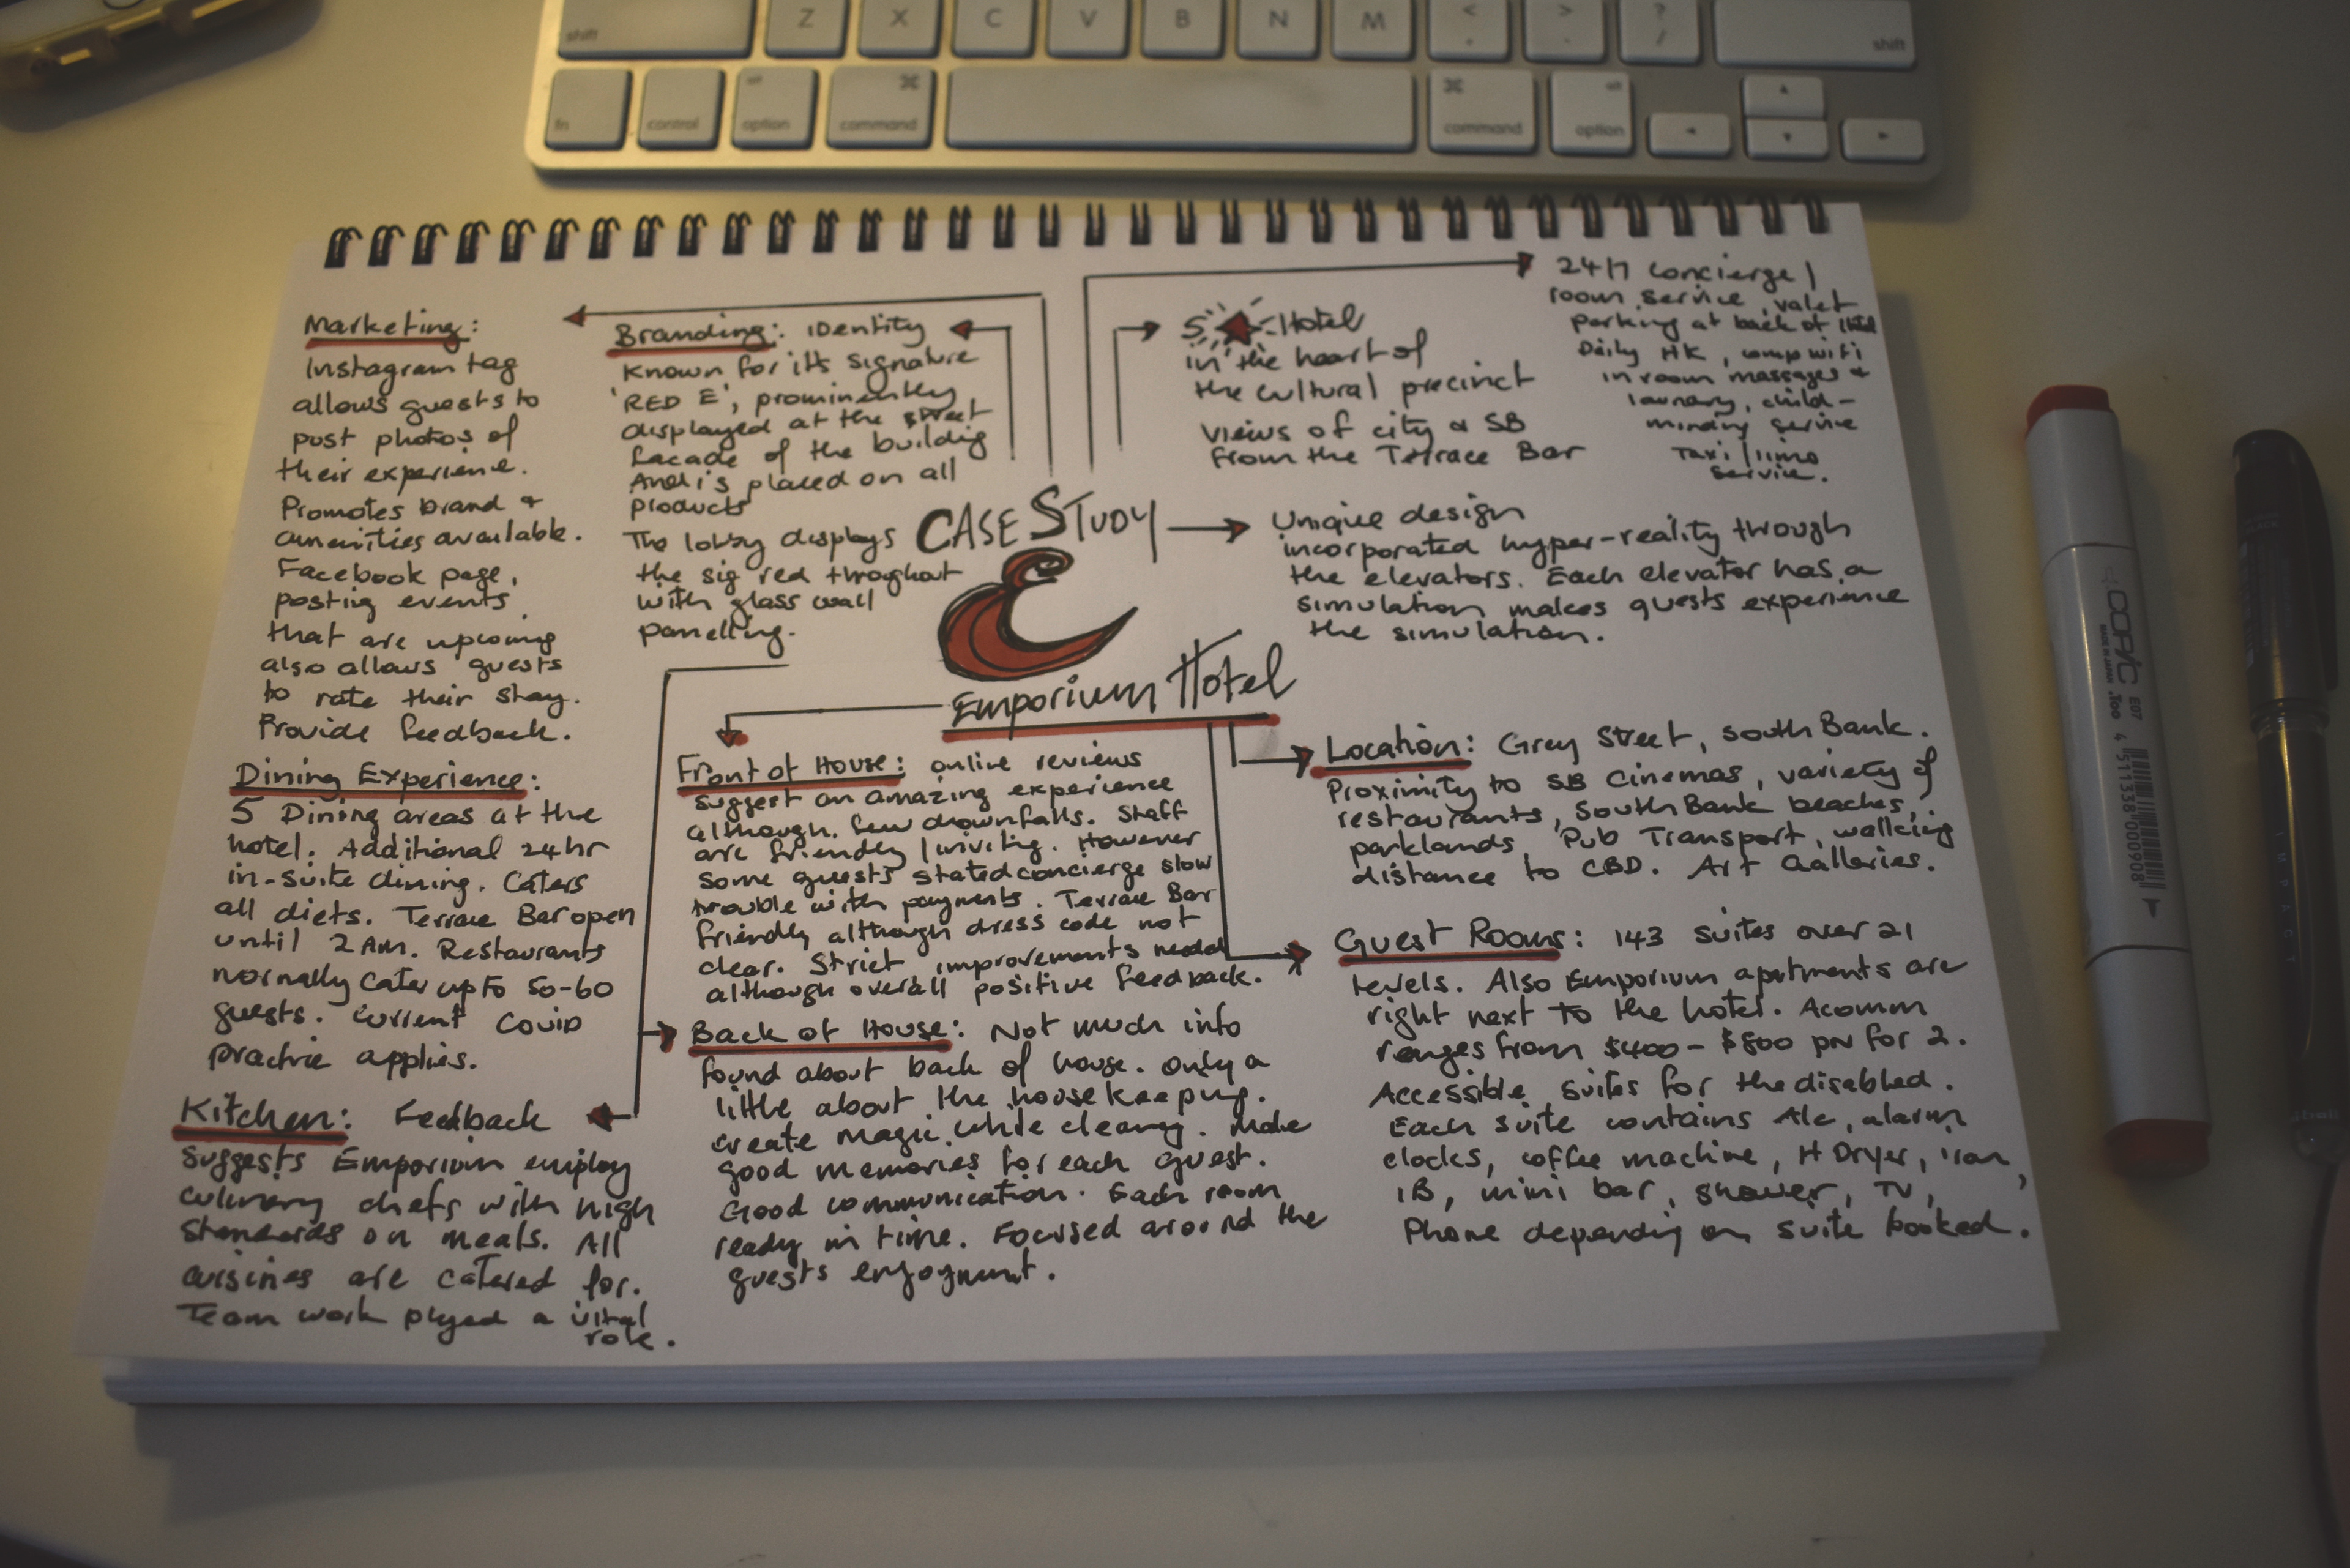 shift
Z
X
C
V
B
N
M
<
,
>
.
?
/
shift
fn
control
alt
option
⌘
command
⌘
command
alt
option
Marketing:
Instagram tag
allows guests to
post photos of
their experience.
Promotes brand &
amenities available.
Facebook page,
posting events
that are upcoming
also allows guests
to rate their stay.
Provide feedback.
Dining Experience:
5 Dining areas at the
hotel. Additional 24hr
in-suite dining. Caters
all diets. Terrace Bar open
until 2AM. Restaurants
normally cater up to 50-60
guests. Current Covid
practice applies.
Kitchen: Feedback
suggests Emporium employ
culinary chefs with high
standards on meals. All
cuisines are catered for.
Team work played a vital
role.
Branding: Identity
Known for it's signature
'RED E', prominently
displayed at the street
facade of the building
And is placed on all
products
The lobby displays
the sig red throghout
with glass wall
panelling.
CASE STUDY
E
Emporium Hotel
Front of House: online reviews
suggest an amazing experience
although, few downfalls. Staff
are friendly / inviting. However
some guests stated concierge slow
trouble with payments. Terrace Bar
friendly although dress code not
clear. Strict improvements needed
although overall positive feedback.
Back of House: Not much info
found about back of house. Only a
little about the housekeeping.
create magic while cleaning. Make
good memories for each guest.
Good communication. Each room
ready in time. Focused around the
guests enjoyment.
5 ★ Hotel
in the heart of
the cultural precinct
views of city & SB
from the Terrace Bar
24/7 concierge /
room service, valet
parking at back of Hotel
Daily HK, comp wifi
in room massages &
laundry, child-
minding service
Taxi / limo
service.
Unique design
incorporated hyper-reality through
the elevators. Each elevator has a
simulation makes guests experience
the simulation.
Location: Grey Street, South Bank.
Proximity to SB Cinemas, variety of
restaurants, South Bank beaches,
parklands, Pub Transport, walking
distance to CBD. Art Galleries.
Guest Rooms: 143 suites over 21
levels. Also Emporium apartments are
right next to the hotel. Acomm
ranges from $400 - $800 pn for 2.
Accessible suites for the disabled.
Each suite contains A/c, alarm
clocks, coffee machine, H Dryer, iron,
IB, mini bar, shower, TV,
Phone depending on suite booked.
COPIC
MADE IN JAPAN .Too
E07
4 511338 000908
IMPACT